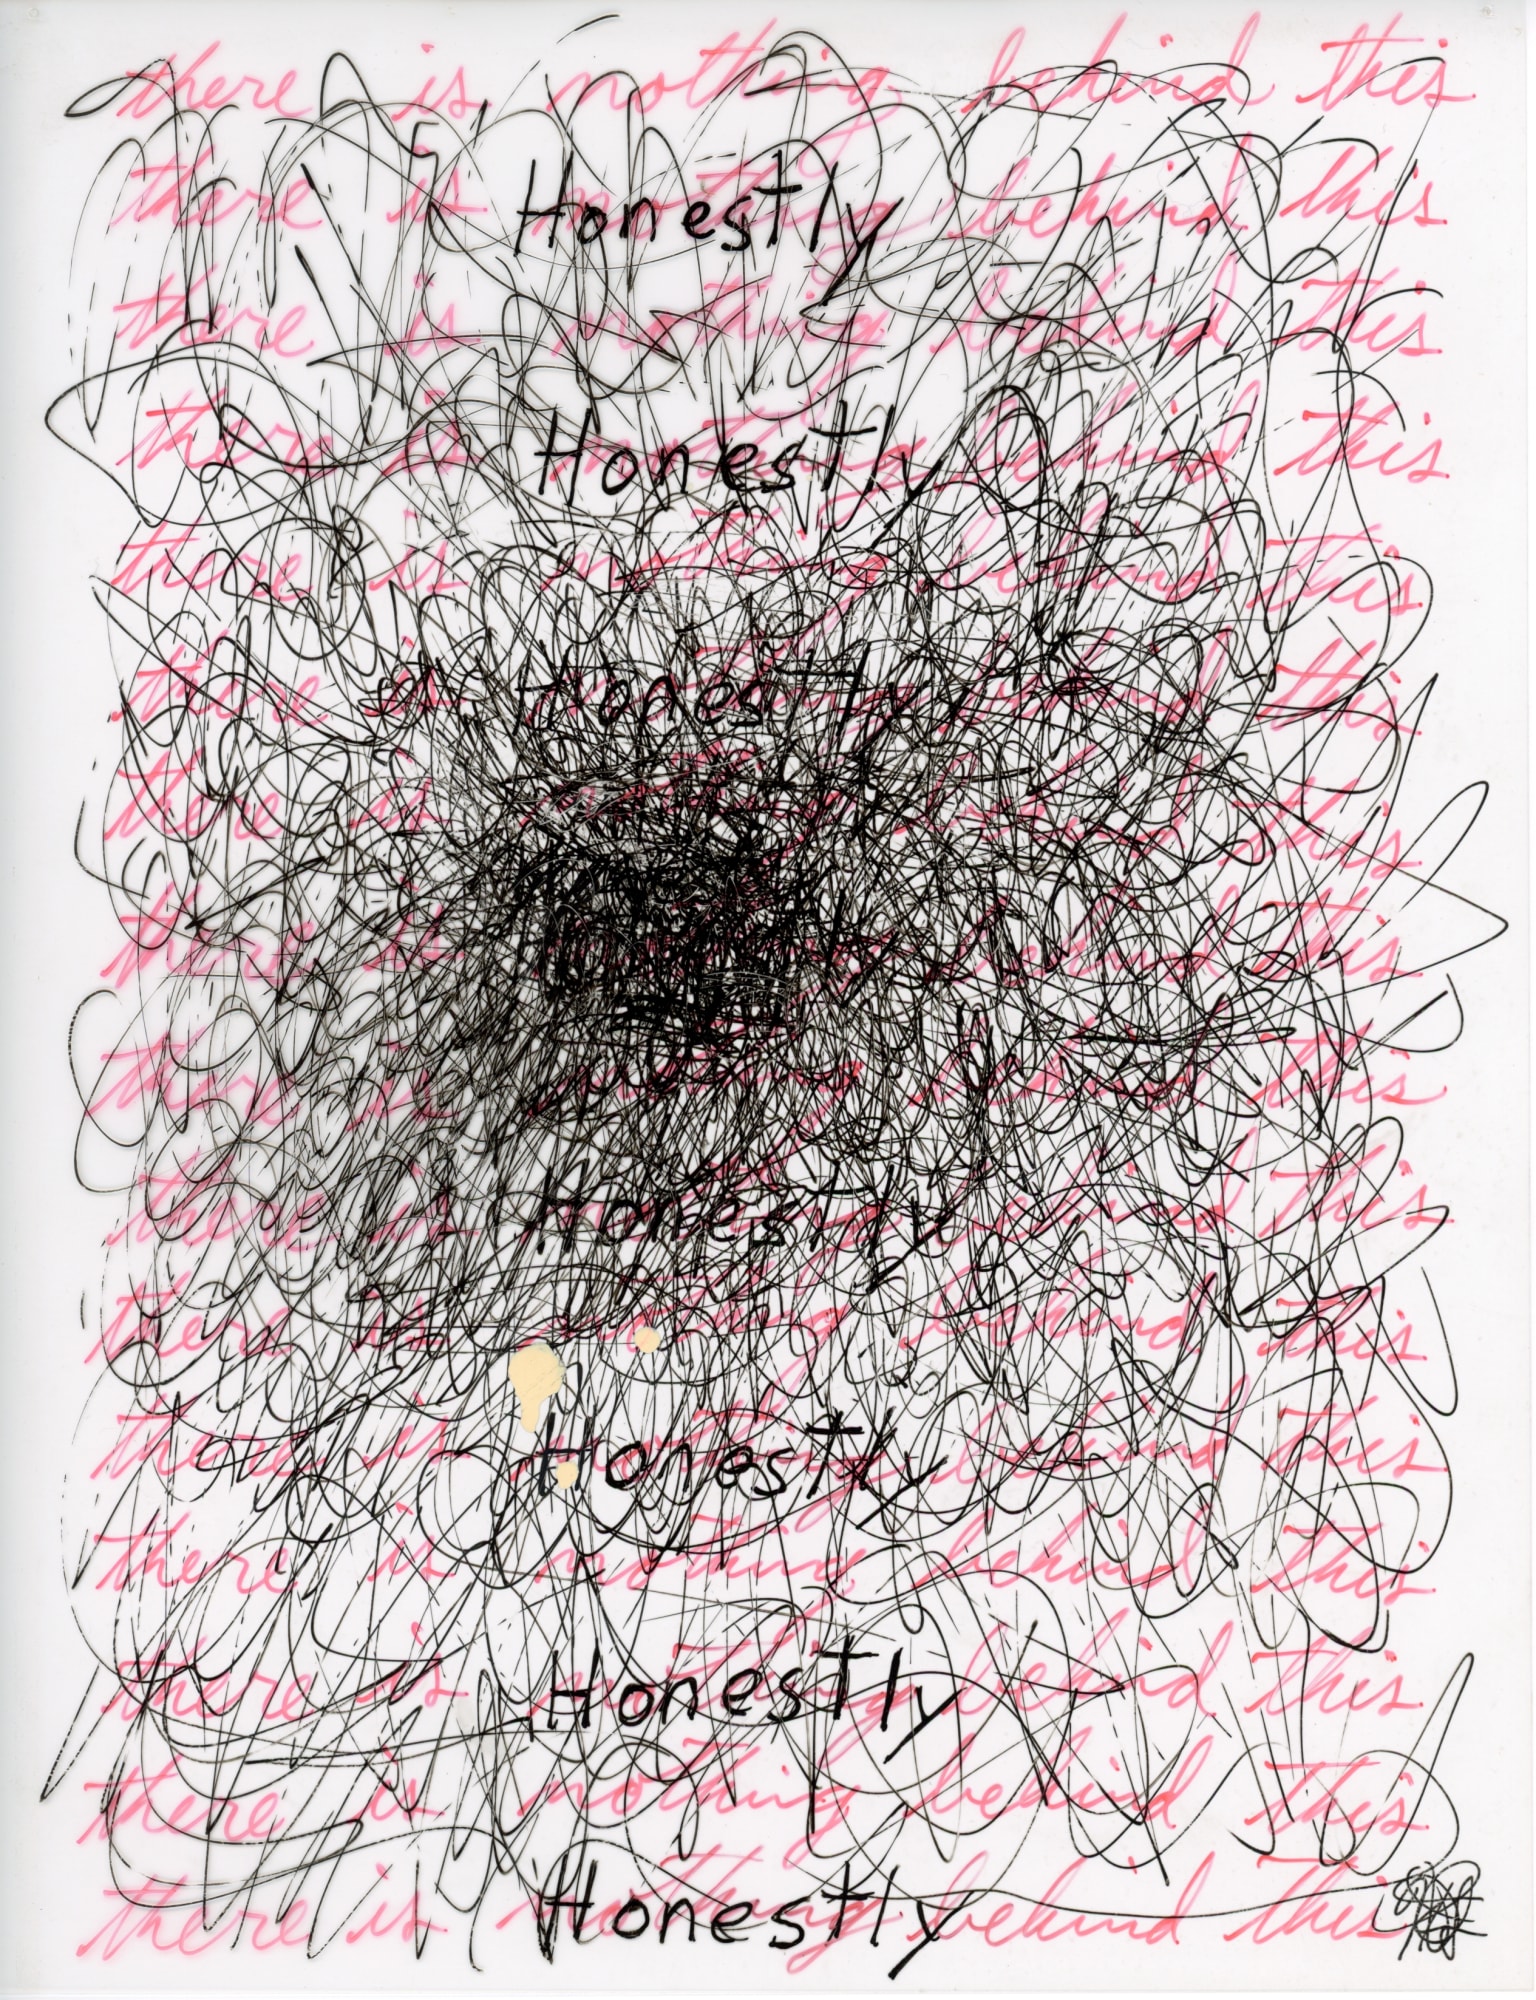 there is nothing behind this
there is nothing behind this
Honestly
there is nothing behind this
there is nothing behind this
Honestly
there is nothing behind this
there is nothing behind this
Honestly
there is nothing behind this
there is behind this
there is nothing behind this
there is nothing behind this
Honestly
there is nothing behind this
there is nothing behind this
Honestly
there is nothing behind this
there is nothing behind this
Honestly
there is nothing behind this
there is nothing behind this
Honestly